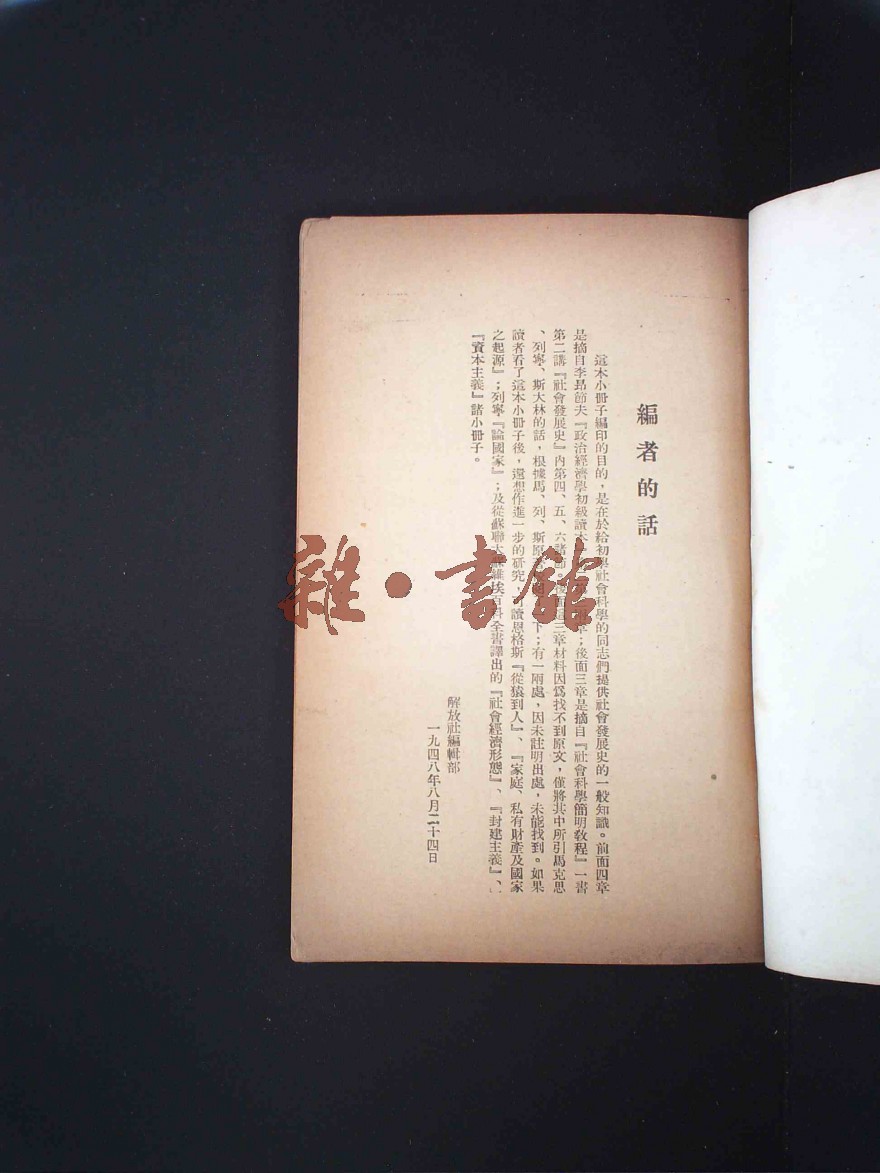 編者的話
這本小冊子編印的目的，是在於給初學社會科學的同志們提供社會發展史的一般知識。前面四章
是摘自李昂節夫『政治經濟學初級讀本』；後面三章是摘自『社會科學簡明教程』一書
第二講『社會發展史』內第四、五、六諸節。三章材料因爲找不到原文，僅將其中所引馬克思
、列寧、斯大林的話，根據馬、列、斯原下；有一兩處，因未註明出處，未能找到。如果
讀者看了這本小冊子後，還想作進一步的研究，可讀恩格斯『從猿到人』、『家庭、私有財產及國家
之起源』；列寧『論國家』；及從蘇聯大蘇維埃百科全書譯出的『社會經濟形態』、『封建主義』、
『資本主義』諸小冊子。
解放社編輯部
一九四八年八月二十四日
雜·書館